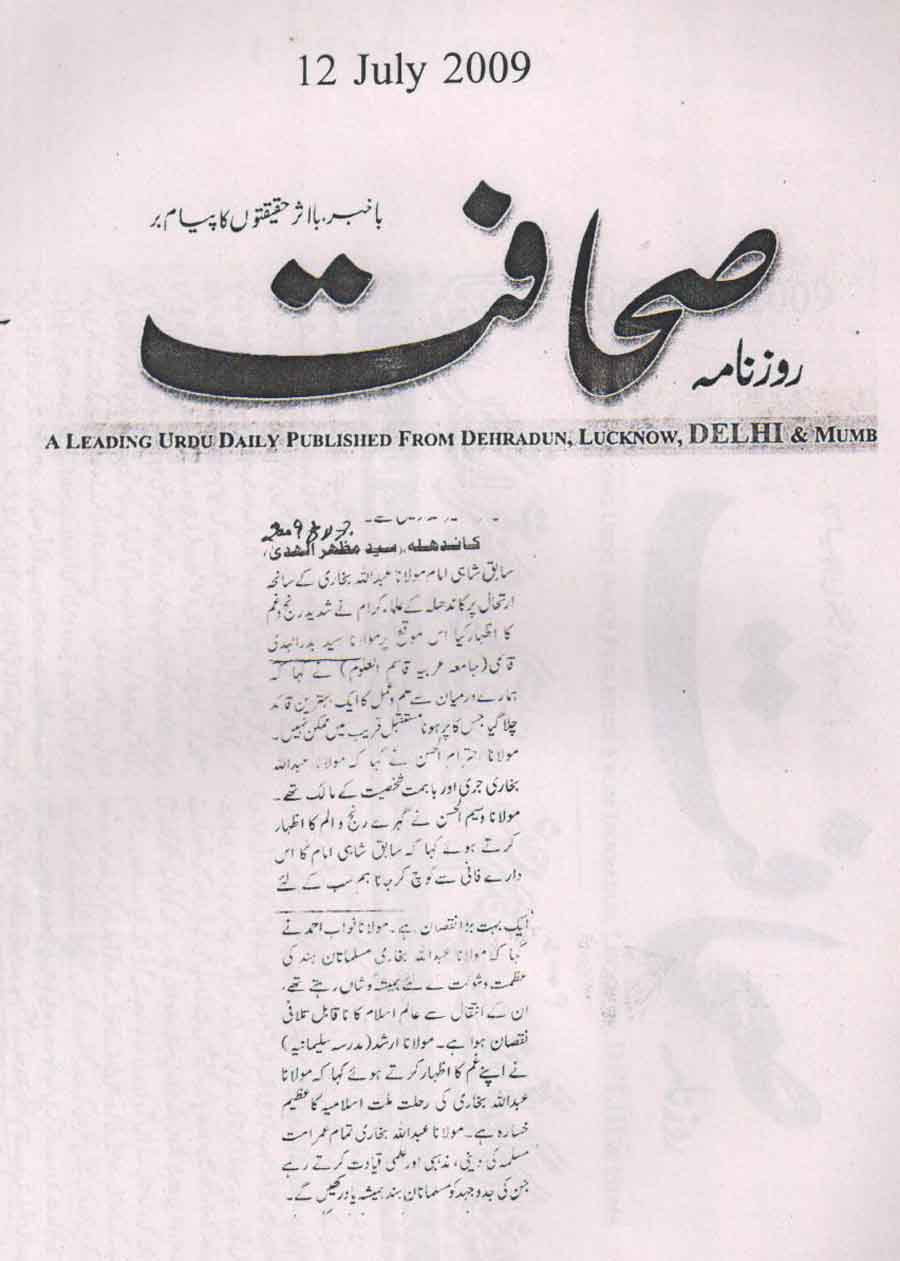 12 July 2009
با خبر، با اثر حقیقتوں کا پیام بر
صحافت
روزنامہ
A LEADING URDU DAILY PUBLISHED FROM DEHRADUN, LUCKNOW, DELHI & MUMB
کاندھلہ، سید مظہر الھدیٰ،
سابق شاہی امام مولانا عبداللہ بخاری کے سانحہ
ارتحال پر کاندھلہ کے علماء کرام نے شدید رنج و غم
کا اظہار کیا اس موقع پر مولانا سید بدر الہدی
قاسمی (جامعہ عربیہ قاسم العلوم) نے کہا کہ
ہمارے درمیان سے علم و عمل کا ایک بہترین قائد
چلا گیا جس کا پر ہونا مستقبل قریب میں ممکن نہیں۔
مولانا احترام الحسن نے کہا کہ مولانا عبداللہ
بخاری جری اور باہمت شخصیت کے مالک تھے۔
مولانا وسیم الحسن نے گہرے رنج و الم کا اظہار
کرتے ہوے کہا کہ سابق شاہی امام کا اس
دارے فانی سے کوچ کر جانا ہم سب کے لئے
ایک بہت بڑا نقصان ہے۔ مولانا نواب احمد نے
کہا کہ مولانا عبداللہ بخاری مسلمانان ہند کی
عظمت و شوکت کے لئے ہمیشہ کوشاں رہتے تھے،
ان کے انتقال سے عالم اسلام کا ناقابل تلافی
نقصان ہوا ہے۔ مولانا ارشد (مدرسہ سلیمانیہ)
نے اپنے غم کا اظہار کرتے ہوئے کہا کہ مولانا
عبداللہ بخاری کی رحلت ملت اسلامیہ کا عظیم
خسارہ ہے۔ مولانا عبداللہ بخاری تمام عمر امت
مسلمہ کی دینی، مذہبی اور علمی قیادت کرتے رہے
جن کی جدوجہد کو مسلمانان ہند ہمیشہ یاد رکھیں گے۔